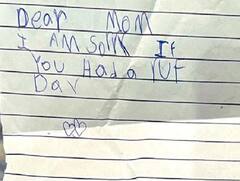 Dear Mom
I AM SOrrk If
You Had a ruf
Dav